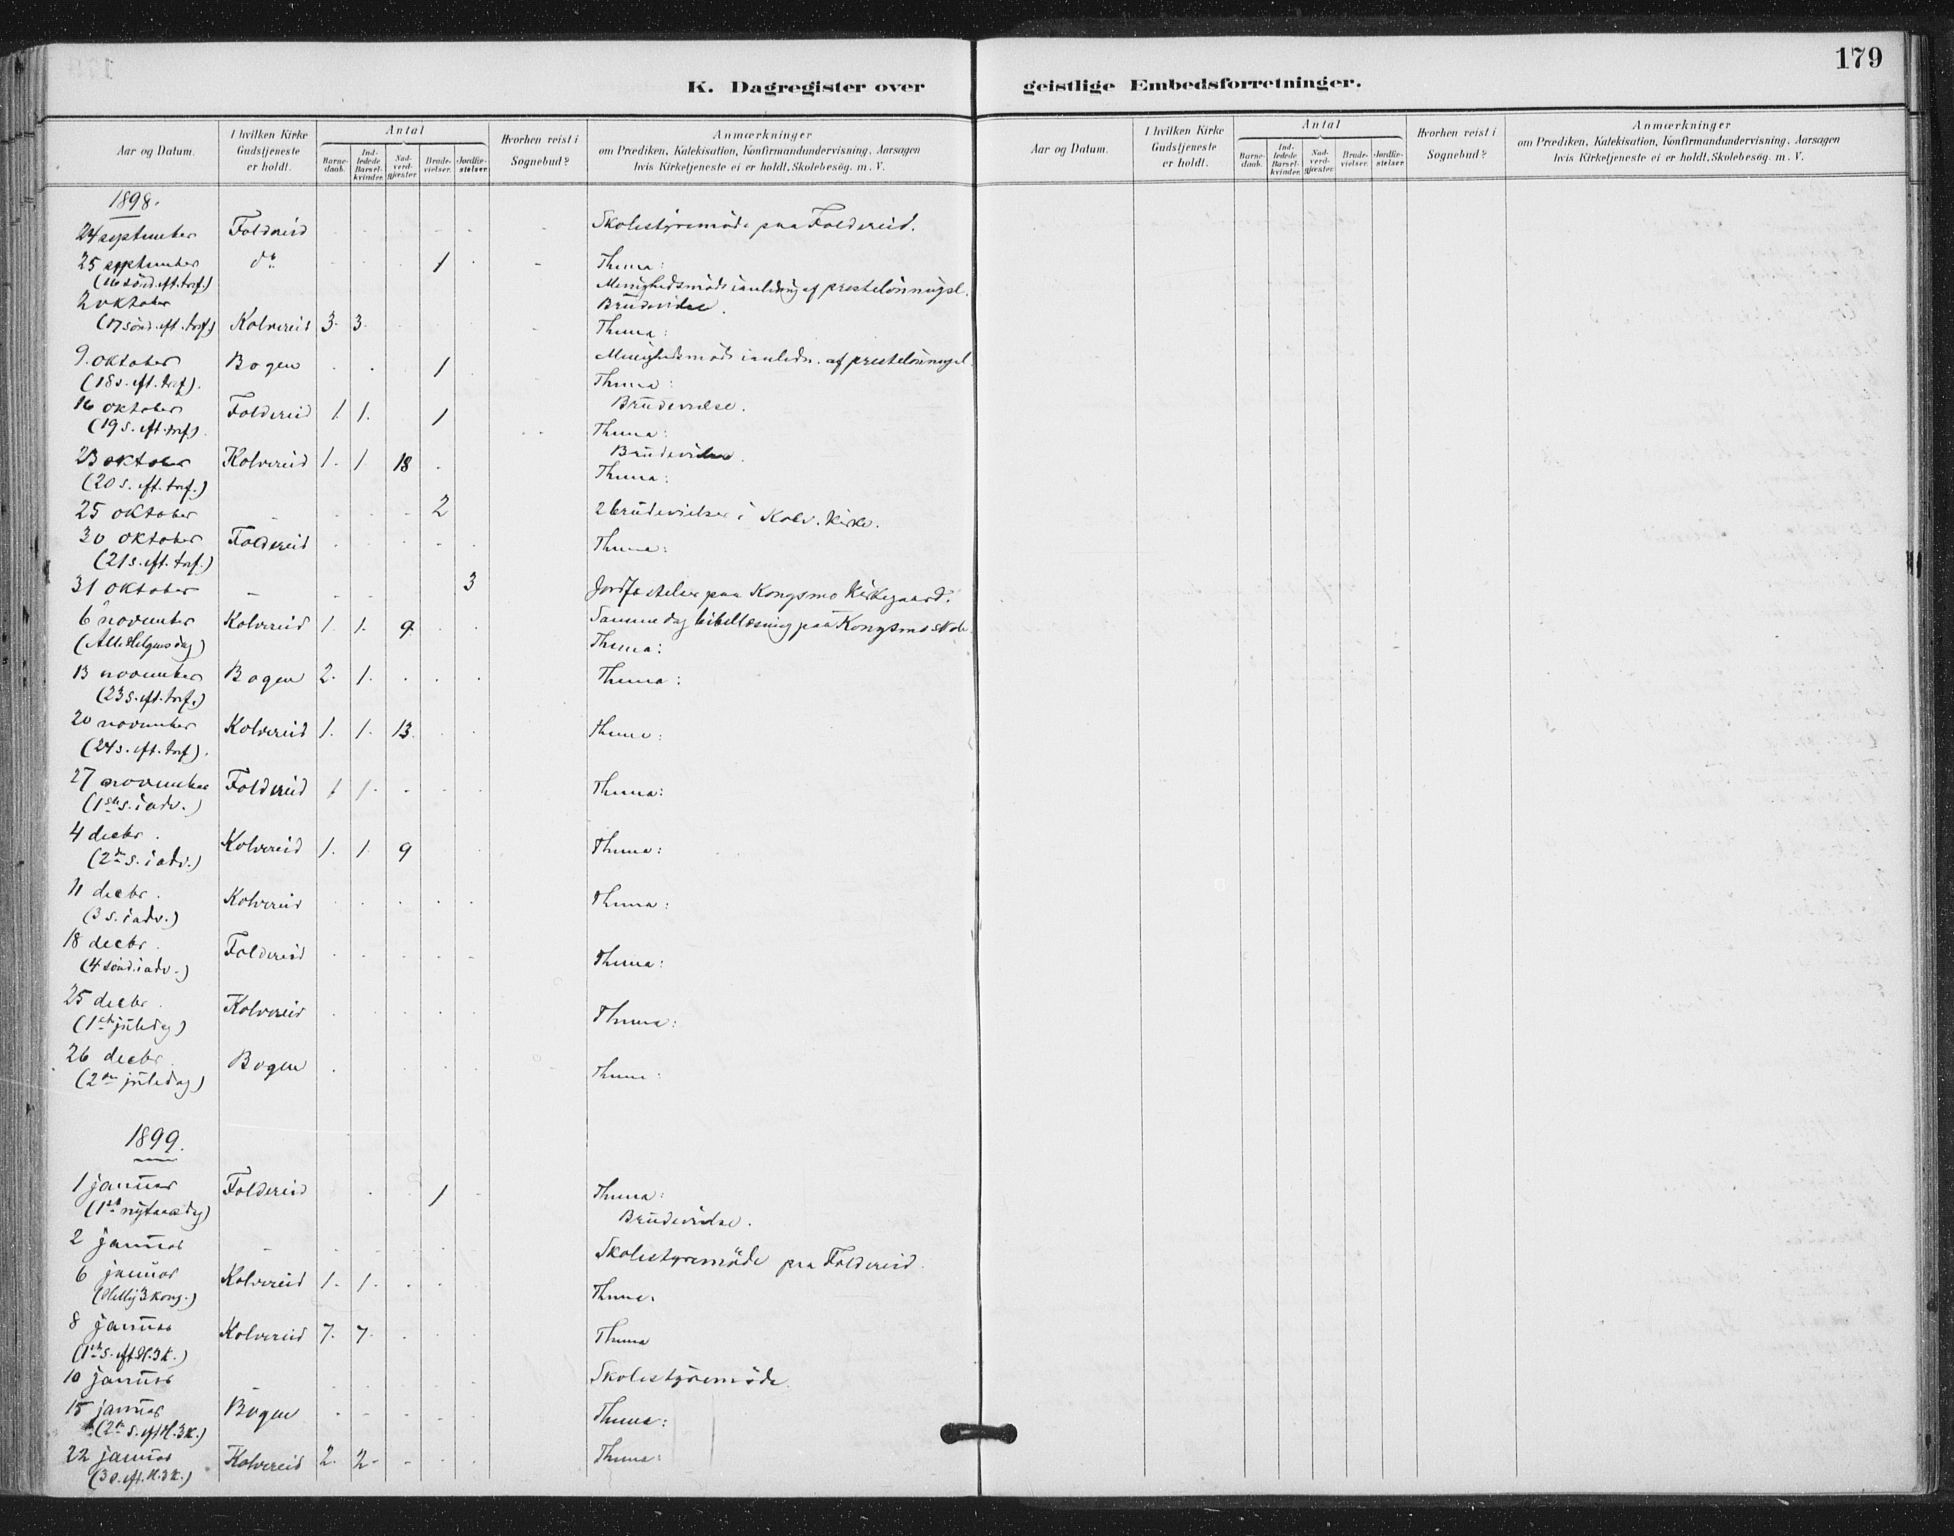 179
K. Dagregister over geistlige Embedsforretninger.
Aar og Datum. I hvilken Kirke Gudstjeneste er holdt. Antal Barnedaab. Indledede Barselkvinder. Nadverdgjæster. Brudevielser. Jordfæstelser. Hvorhen reist i Sognebud? Anmærkninger om Prædiken, Katekisation, Konfirmandundervisning, Aarsagen hvis Kirketjeneste ei er holdt, Skolebesög. m. V.
Aar og Datum. I hvilken Kirke Gudstjeneste er holdt. Antal Barnedaab. Indledede Barselkvinder. Nadverdgjæster. Brudevielser. Jordfæstelser. Hvorhen reist i Sognebud? Anmærkninger om Prædiken, Katekisation, Konfirmandundervisning, Aarsagen hvis Kirketjeneste ei er holdt, Skolebesög. m. V.
1898.
24 september Foldereid Skolestyremöde paa Foldereid.
25 september do 1 Thema:
(16 sönd. eft. tref.) Menighedsmöde i anledning af prestelönningsl.
2 oktober Brudevielse.
(17 sönd. eft. tref.) Kolvereid 3. 3. Thema:
9. oktober Bogen 1 Menighedsmöde i anledn. af prestelönningsl.
(18 s. eft. tref.) Thema:
16 oktober Foldereid 1. 1. 1 Brudevielse.
(19 s. eft. tref.) Thema:
23 oktober Kolvereid 1. 1. 18 Brudevielse.
(20 s. eft. tref.) Thema:
25 oktober 2 2 brudevielser i Kolv. Kirke.
30 oktober Foldereid Thema:
(21 s. eft. tref.)
31 oktober 3 Jordfæstelser paa Kongsmo Kirkegaard.
6 november Kolvereid 1. 1. 9. Samme dag bibellæsning paa Kongsmo skole.
(Allehelgensdag) Thema:
13 november Bogen 2. 1. Thema:
(23 s. eft. tref.)
20 november Kolvereid 1. 1. 13. Thema:
(24 s. eft. tref.)
27 november Foldereid 1 1. Thema:
(1ste s. i adv.)
4 decbr. Kolvereid 1. 1. 9 Thema:
(2den s. i adv.)
11 decbr. Kolvereid Thema:
(3 s. i adv.)
18 decbr. Foldereid Thema:
(4 sönd. i adv.)
25 decbr. Kolvereid Thema:
(1ste juledag)
26 decbr. Bogen Thema:
(2den juledag)
1899.
1 januar Foldereid 1 Thema:
(1ste nytaarsdag) Brudevielse.
2 januar Skolestyremöde paa Foldereid.
6 januar Kolvereid 1. 1. Thema.
(Hellig 3 kong.)
8 januar Kolvereid 7. 7. Thema
(1ste s. eft H. 3 K.)
10 januar Skolestyremöde.
15 januar Bogen Thema:
(2den s. eft H. 3 K.)
22 januar Kolvereid 2. 2. Thema:
(3 s. eft. H. 3 K.)